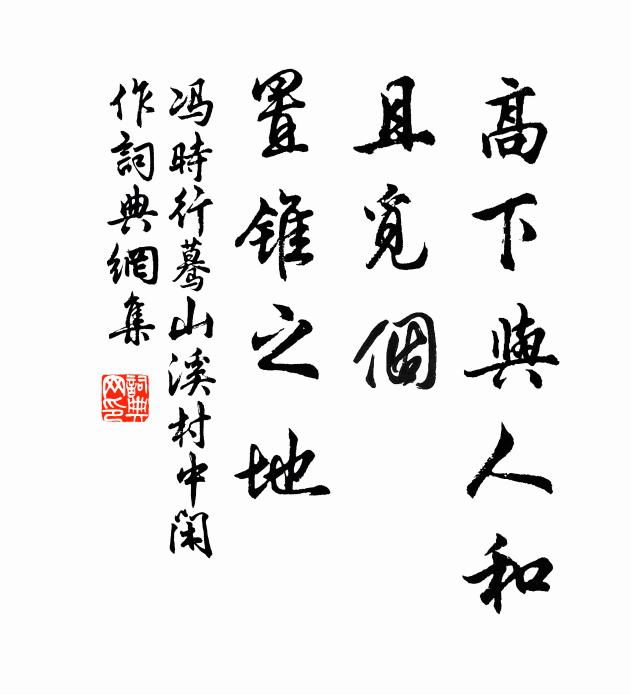 高下與人和
且覓個
置錐之地
冯時行驀山溪村中閑
作詞典網集
詞典网印